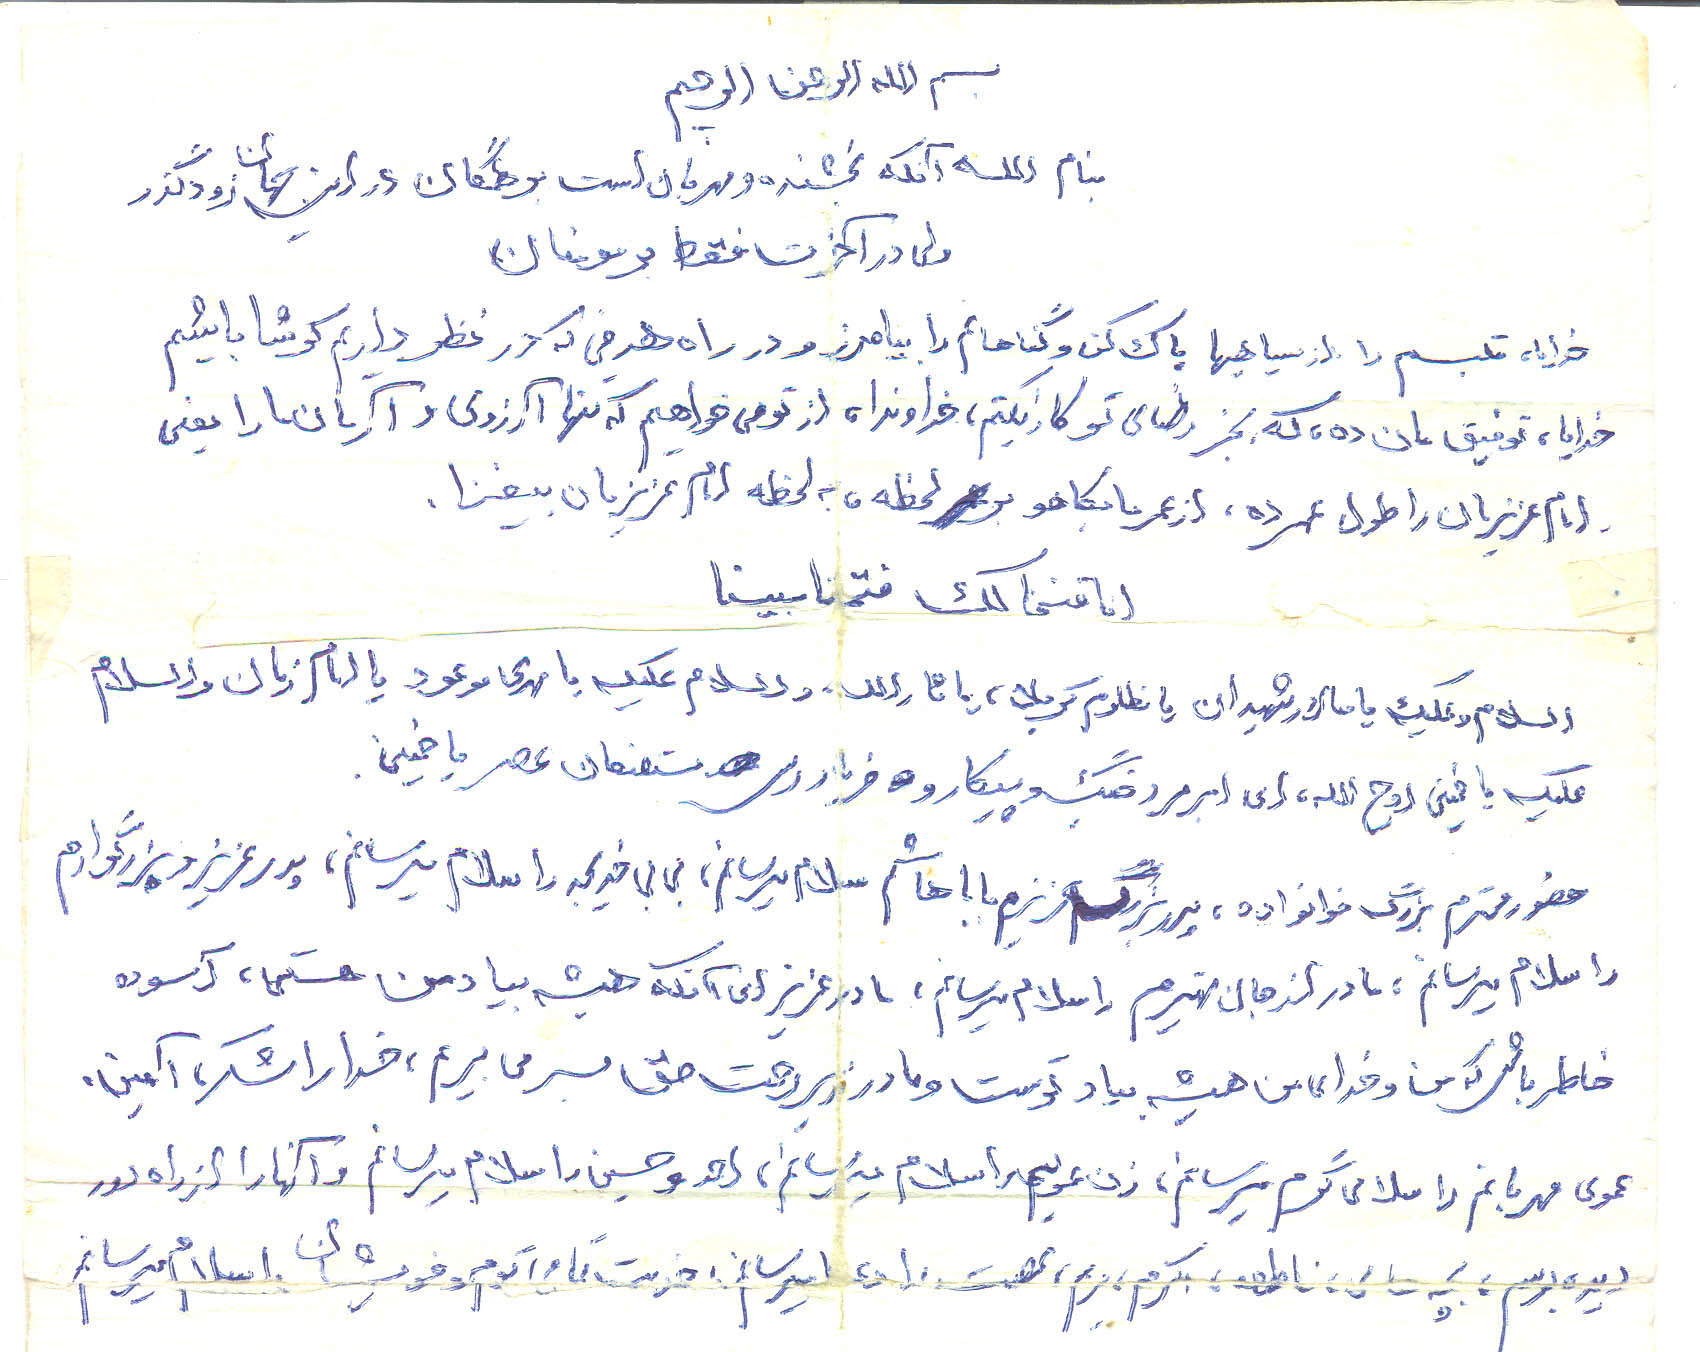 بسم الله الرحمن الرحیم
بنام الله آنکه بخشنده و مهربان است بر همگان در این جهان زودگذر
ولی در آخرت فقط بر مومنان
خدایا، قلبم را از سیاهیها پاک کن و گناهانم را بیامرز و در راه هدفی که در نظر داریم کوشا باشیم
خدایا، توفیق مان ده، که بجز رضای تو کار نکنیم، خداوندا، از تو می خواهیم که تنها آرزوی و آرمان ما را یعنی
امام عزیزمان را طول عمر ده، از عمر ما بکاه و بر لحظه، به لحظه امام عزیزمان بیفزا.
انا فتحنا لک فتحنا مبینا
السلام و علیک یا سالار شهیدان یا مظلوم کربلا، یا ثارالله، و السلام علیک یا مهدی موعود یا امام زمان و السلام
علیک یا خمینی روح الله، ای ابرمرد جنگ و پیکار و فریادرس مستضعفان عصر یا خمینی.
حضور محترم بزرگ خوانواده، پدر بزرگ عزیزم بابا هاشم سلام میرسانم، بی بی خدیجه را سلام میرسانم، پدر عزیز و بزرگوارم
را سلام میرسانم، مادر از جان بهترم را سلام میرسانم، مادر عزیز ای آنکه همیشه بیاد من هستی، آسوده
خاطر باش که من و خدای من همیشه بیاد توست و ما در زیر رحمت حق بسر می بریم، خدا را شکر، آمین.
عموی مهربانم را سلامی گرم میرسانم، زن عمویم را سلام میرسانم، احمد و حسین را سلام میرسانم و آنها را از راه دور
دیده بوسم، بچه های، فاطمه، اکرم، مریم، را میرسانم، خدمت تمام اقوم و خویشان سلام میرسانم